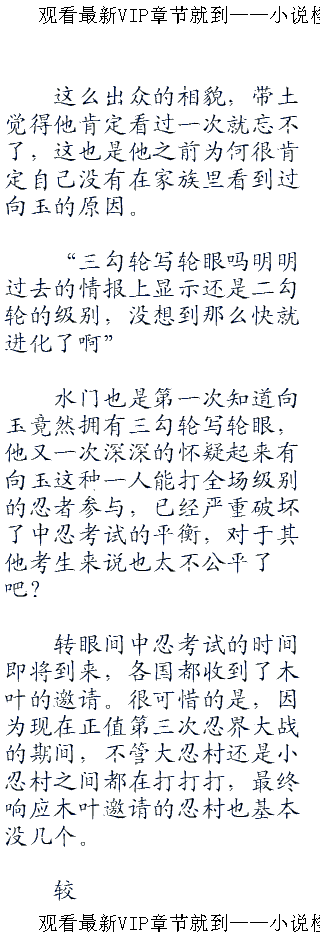 观看最新VIP章节就到——小说
这么出众的相貌，带土
觉得他肯定看过一次就忘不
了，这也是他之前为何很肯
定自己没有在家族里看到过
向玉的原因。
“三勾轮写轮眼吗明明
过去的情报上显示还是二勾
轮的级别，没想到那么快就
进化了啊”
水门也是第一次知道向
玉竟然拥有三勾轮写轮眼，
他又一次深深的怀疑起来有
向玉这种一人能打全场级别
的忍者参与，已经严重破坏
了中忍考试的平衡，对于其
他考生来说也太不公平了
吧？
转眼间中忍考试的时间
即将到来，各国都收到了木
叶的邀请。很可惜的是，因
为现在正值第三次忍界大战
的期间，不管大忍村还是小
忍村之间都在打打打，最终
响应木叶邀请的忍村也基本
没几个。
较
观看最新VIP章节就到——小说